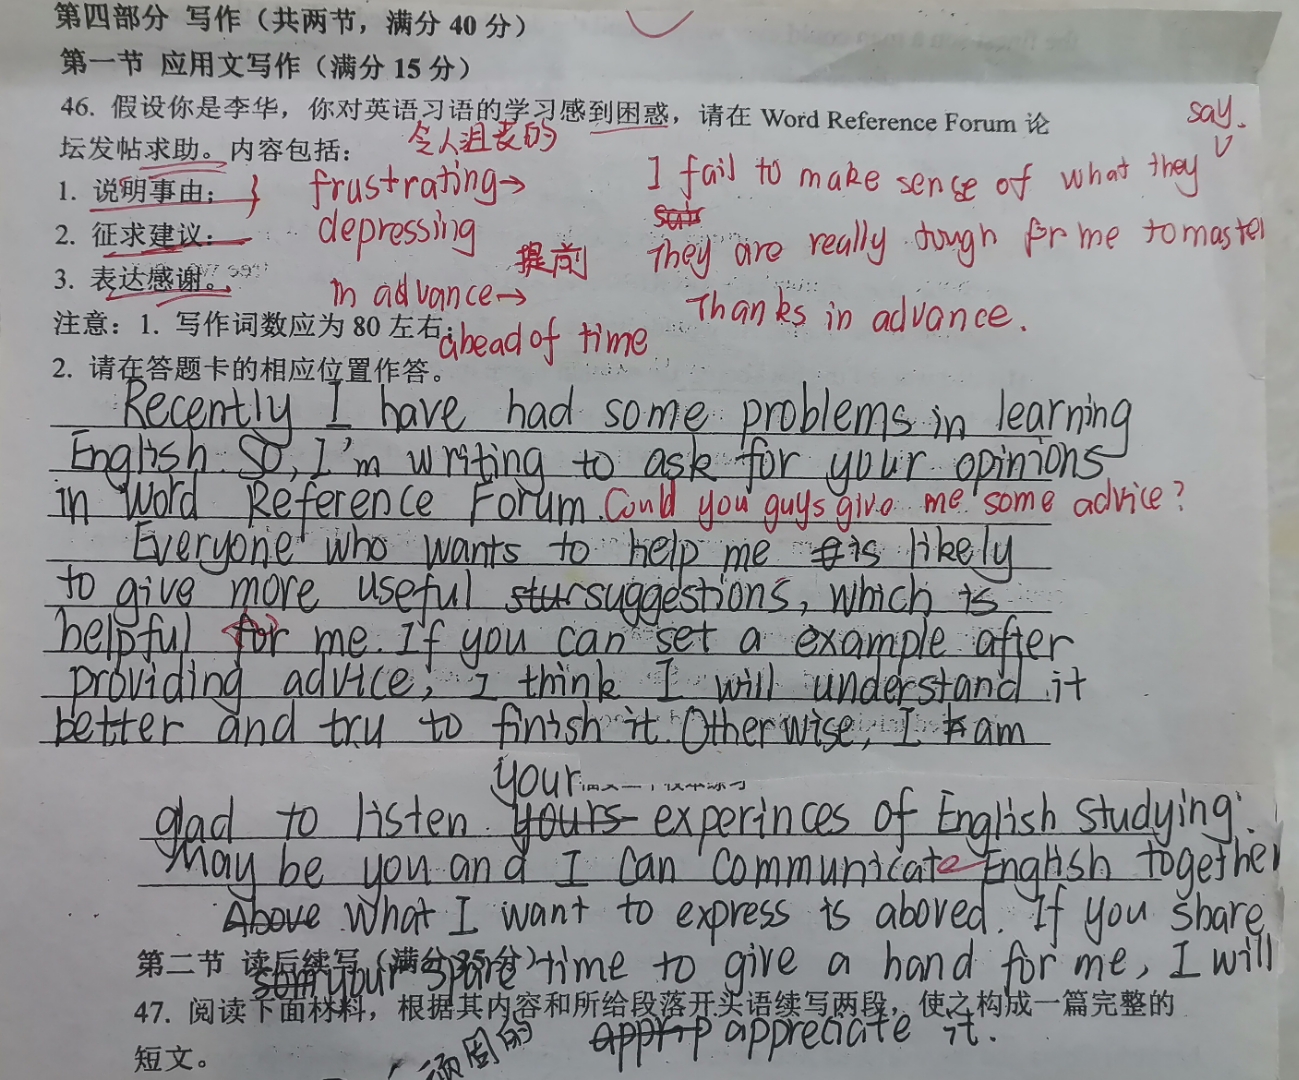 第四部分 写作（共两节，满分 40 分）
第一节 应用文写作（满分 15 分）
46. 假设你是李华，你对英语习语的学习感到困惑，请在 Word Reference Forum 论
say.
令人沮丧的
坛发帖求助。内容包括：
1. 说明事由；
frustrating→
I fail to make sense of what they
2. 征求建议；
depressing
提前
They are really tough for me to master
3. 表达感谢。
in advance→
Thanks in advance.
注意：1. 写作词数应为 80 左右；
ahead of time
2. 请在答题卡的相应位置作答。
Recently I have had some problems in learning
English. So, I'm writing to ask for your opinions
in Word Reference Forum. Could you guys give me some advice?
Everyone who wants to help me is likely
to give more useful suggestions, which is
helpful for me. If you can set a example after
providing advice, I think I will understand it
better and try to finish it. Otherwise, I am
your
glad to listen yours experinces of English studying.
May be you and I can communicate English together
Above What I want to express is aboved. If you share
第二节 读后续写（满分 25 分）
your spare time to give a hand for me, I will
47. 阅读下面材料，根据其内容和所给段落开头语续写两段，使之构成一篇完整的
appreciate it.
短文。